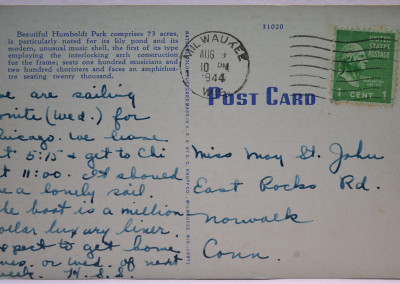 Beautiful Humboldt Park comprises 73 acres,
is particularly noted for its lily pond and its
modern, unusual music shell, the first of its type
employing the interlocking arch construction
for the frame; seats one hundred musicians and
two hundred choristers and faces an amphithea-
tre seating twenty thousand.
31020
MILWAUKEE
AUG
10 PM
1944
WIS.
UNITED
STATES
POSTAGE
1 CENT 1
POST CARD
we are sailing
nite (wed.) for
Chicago. We leave
at 5:15 & get to Chi
at 11:00. It should
be a lonely sail.
The boat is a million
dollar luxury liner.
Expect to get home
or wed. of next
week. H.S.S.
Miss May St. John
East Rocks Rd.
Norwalk
Conn.